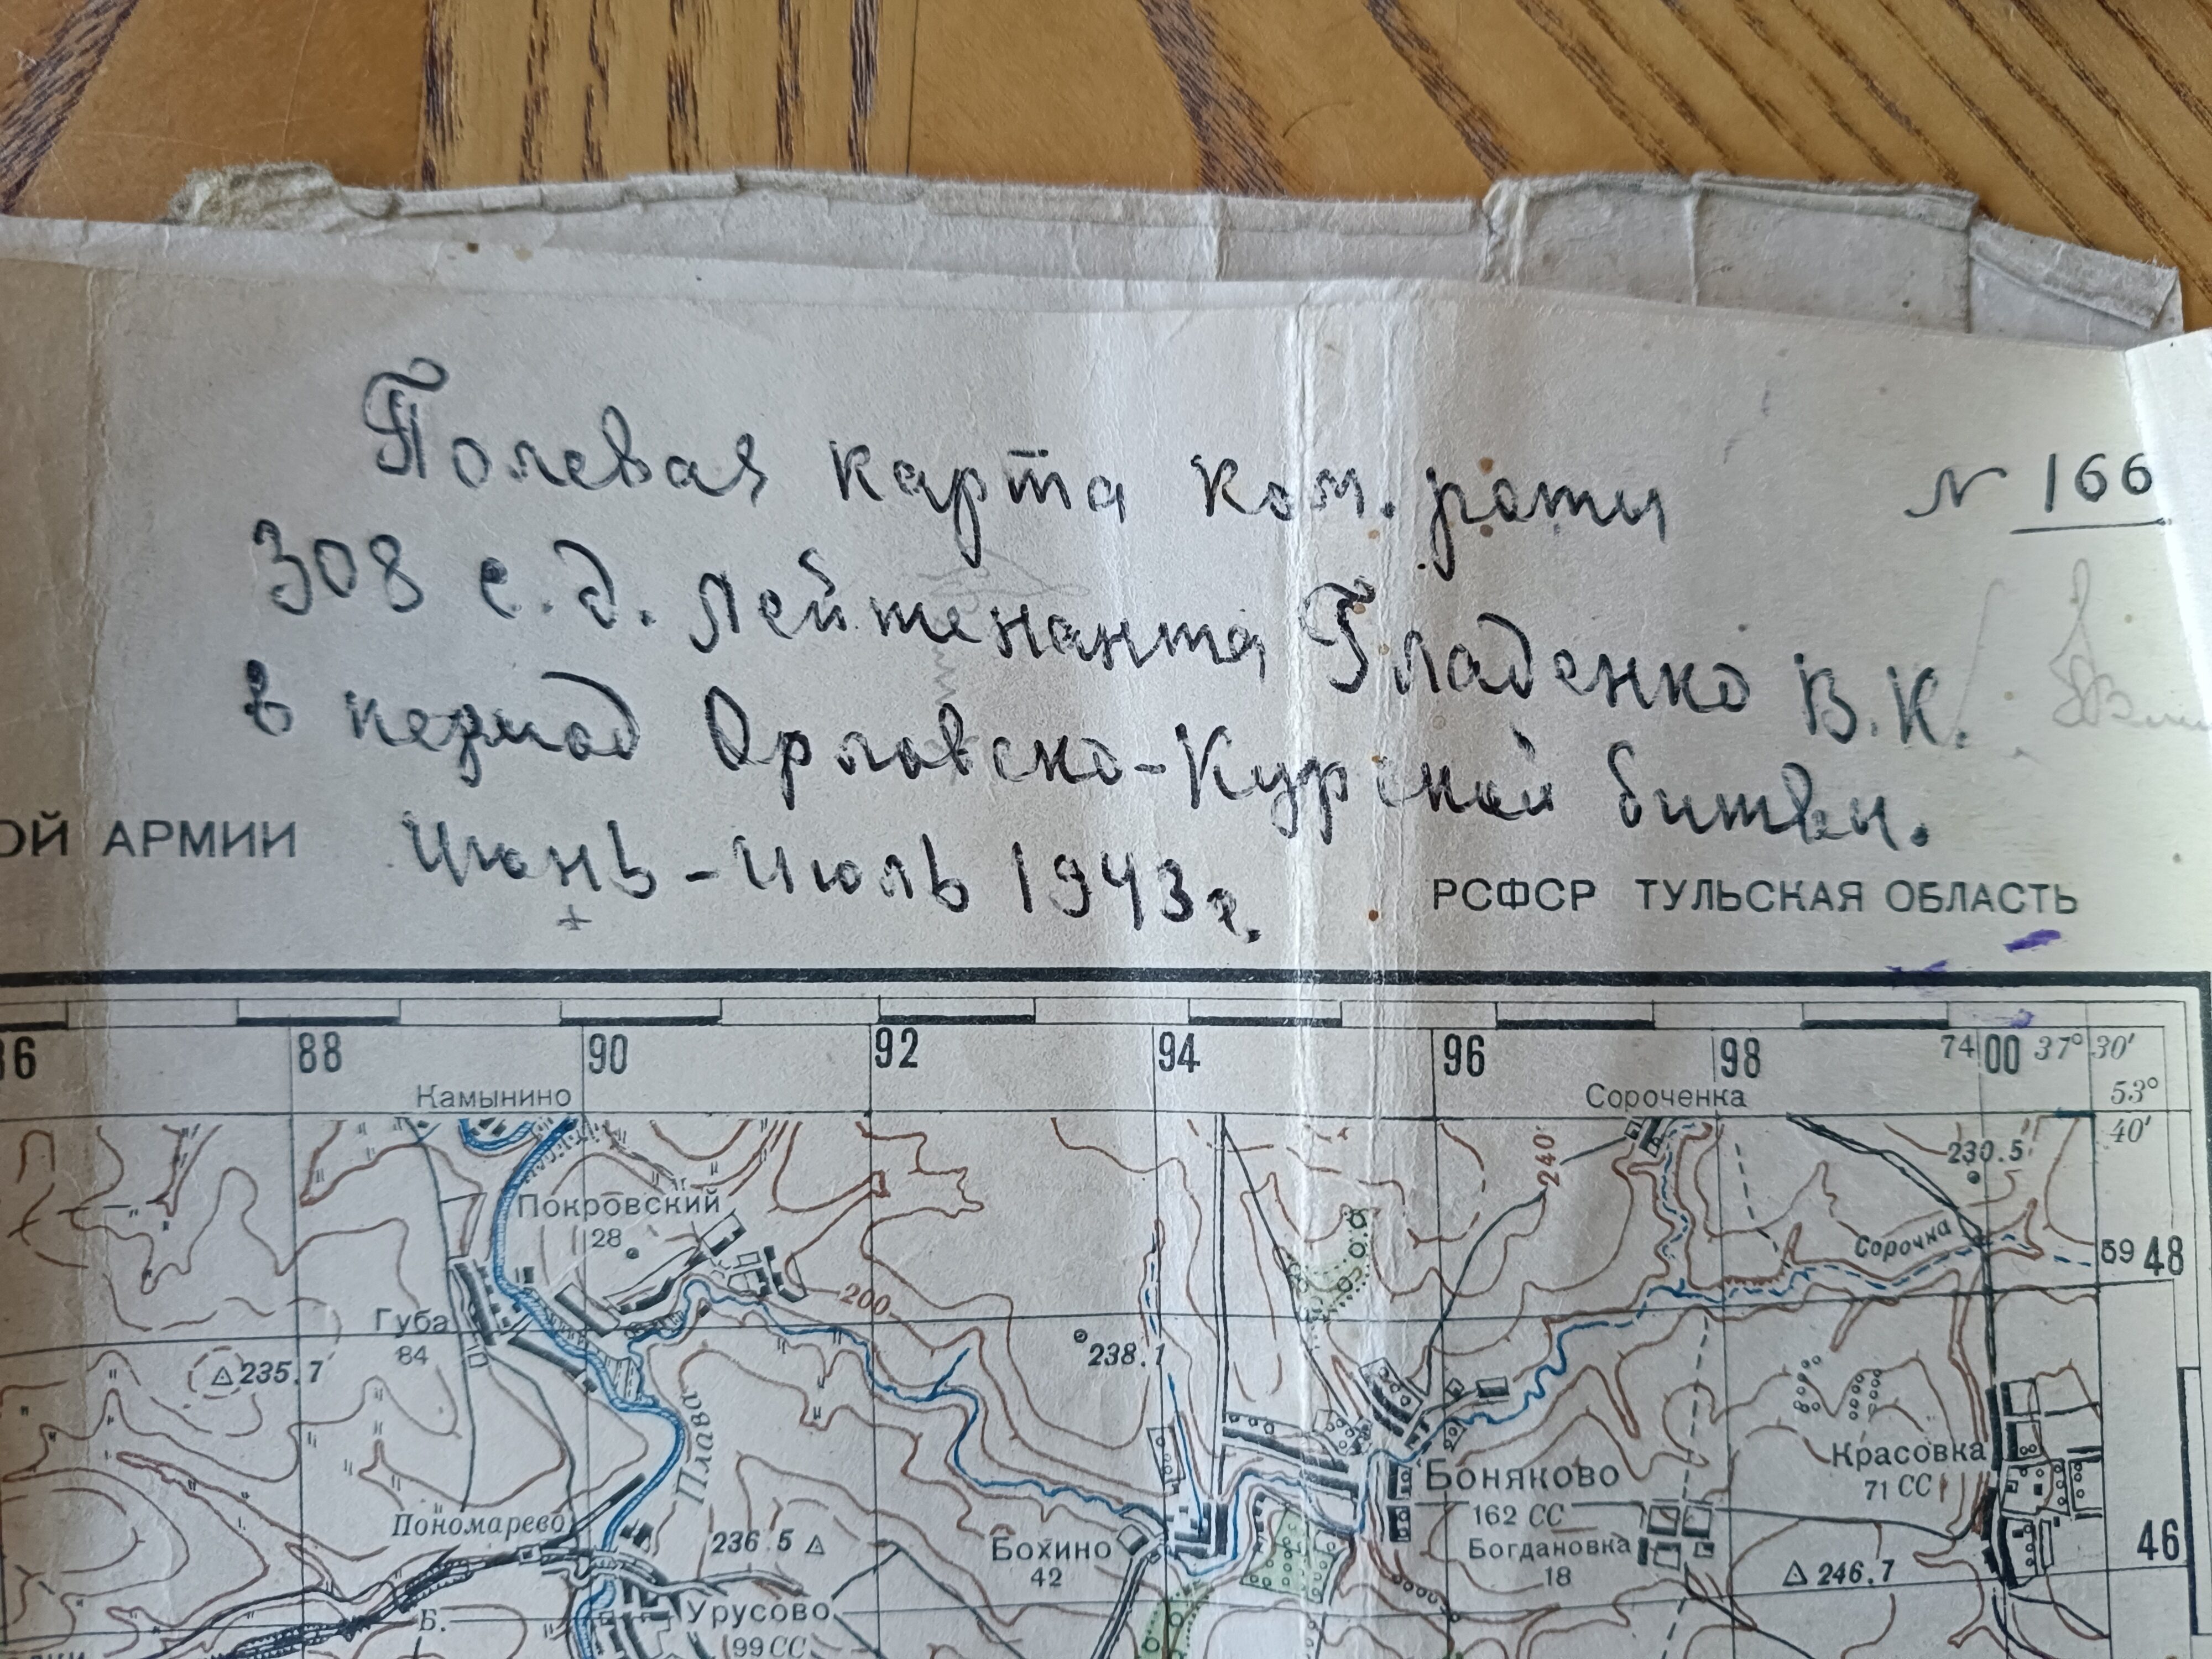 Полевая карта ком. роты
№ 166
308 с.д. Лейтенанта Гладенко В.К.
в период Орловско-Курской битвы.
Июнь-Июль 1943г.
ОЙ АРМИИ
РСФСР ТУЛЬСКАЯ ОБЛАСТЬ
86 88 90 92 94 96 98 74 00 37° 30'
53° 40'
Камынино
Сороченка
240
230.5
Покровский
28
Сорочка
59 48
200
Губа
84
238.1
235.7
Плава
Красовка
71 СС
Боняково
162 СС
Пономарево
236.5
Бохино
42
Богдановка
18
246.7
46
Б.
Урусово
99 СС